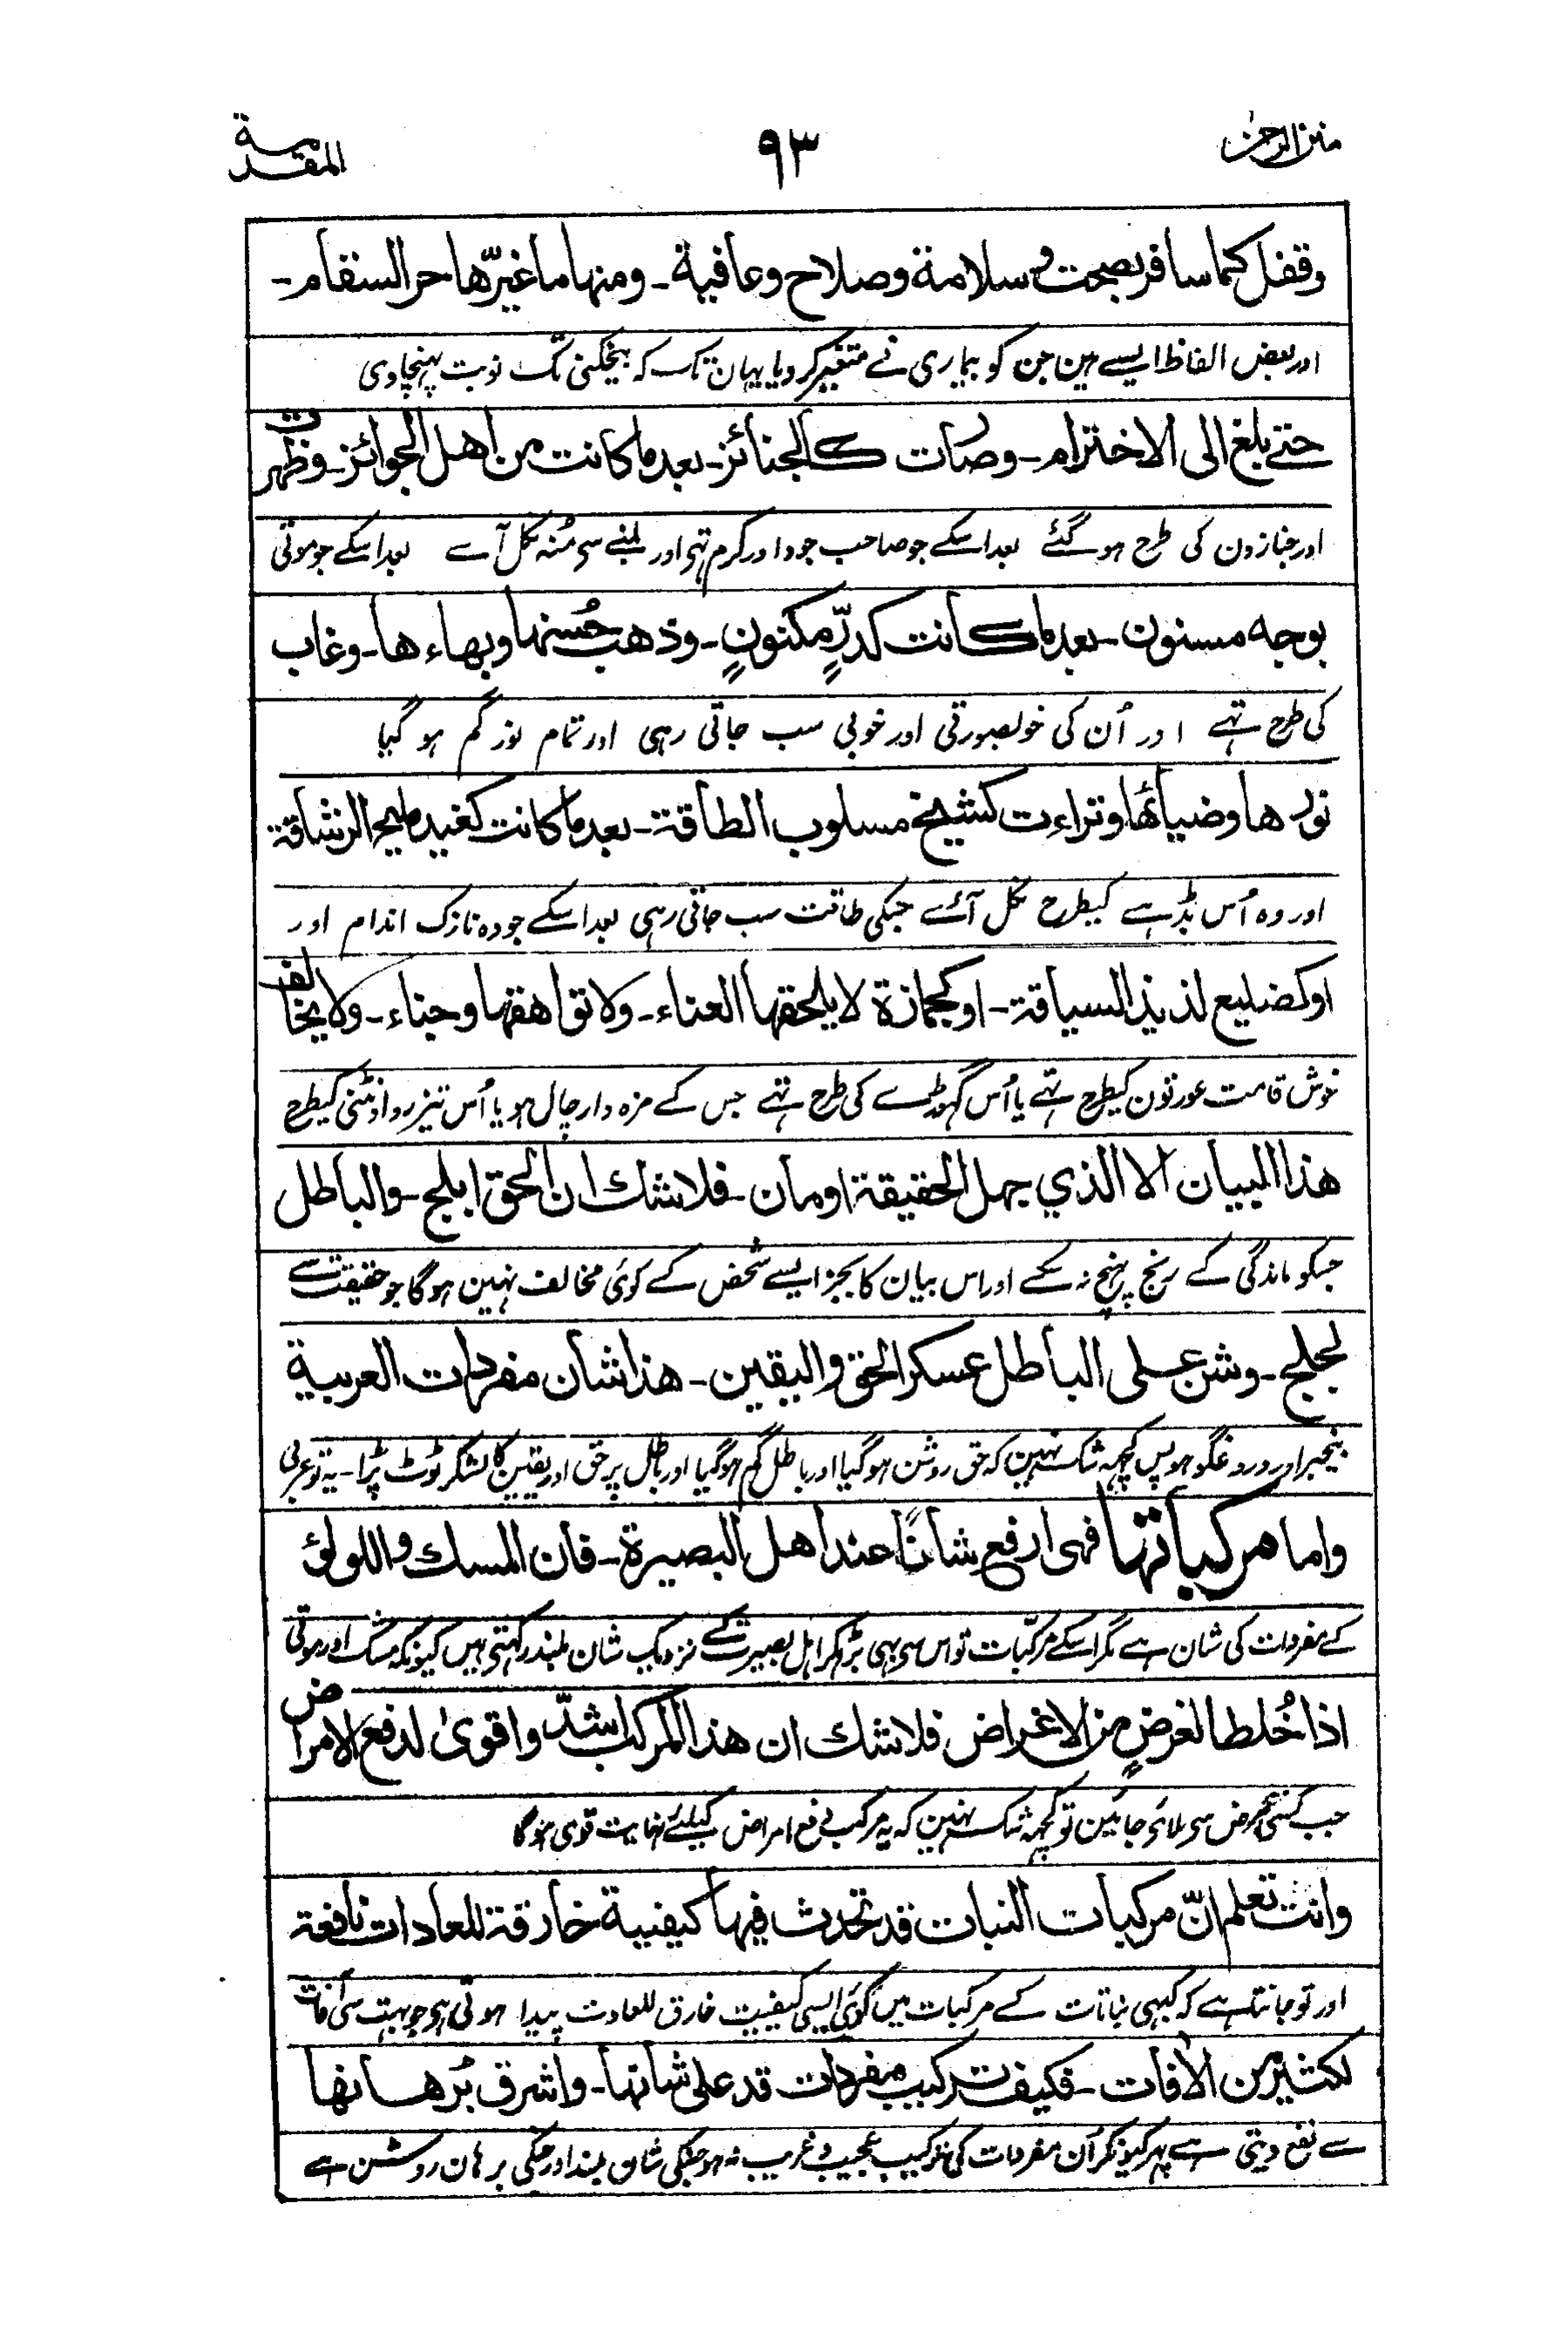 منن الرحمن
۹۳
المقدمة
وقفل كما سافر بصحت وسلامة وصلاح وعافية ـ ومنها ما غيّرها حر السقام ـ
اور بعض الفاظ ایسے ہین جن کو بیماری نے متغیر کر دیا یہان تک کہ بیخکنی تک نوبت پہنچاوی
حتے بلغ الى الاخترام ـ وصارت كالجنائز ـ بعد ما كانت من اهل الجوائز ـ وظهرت
اور جنازون کی طرح ہو گئے بعد اسکے جو صاحب جود اور کرم تہی اور لمبنے سی مُنہ نکل آے بعد اسکے جو موتی
بوجه مسنون ـ بعد ما كانت كدرٍّ مكنونٍ ـ وذهب حُسنها وبهاءها ـ وغاب
کی طرح تہے اور اُن کی خوبصورتی اور خوبی سب جاتی رہی اور تمام نور گم ہو گیا
نورها وضياءُها وتراءت كشيخ مسلوب الطاقة ـ بعد ما كانت كغيد مليح الرشاقة
اور وہ اُس بڈہے کیطرح نکل آئے جسکی طاقت سب جاتی رہی بعد اسکے جو وہ نازک اندام اور
او كضليع لذيذ السياقة ـ او كجمازة لا يلحقها العناء ـ ولا تواهقها وجناء ـ ولا يخالف
خوش قامت عورتون کیطرح تہے یا اُس گہوڑے کی طرح تہے جس کے مزہ دار چال ہو یا اُس تیز رو اونٹنی کیطرح
هذا البيان الا الذي جهل الحقيقة او مان ـ فلا شك ان الحق ابلج ـ والباطل
جسکو ماندگی کے رنج پہنچ نہ سکے اور اس بیان کا بجز ایسے شخص کے کوئی مخالف نہین ہوگا جو حقیقت سے
لجلج ـ وشن على الباطل عسكر الحق واليقين ـ هذا شان مفردات العربية
بیخبر اور دروغگو ہو پس کچہہ شک نہین کہ حق روشن ہوگیا اور باطل گم ہوگیا اور باطل پر حق اور یقین کا لشکر ٹوٹ پڑا ـ یہ تو عربی
واما مركباتها فهى ارفع شانًا عند اهل البصيرة ـ فان المسك واللولؤ
کے مفردات کی شان ہے مگر اسکے مرکبّات تو اس سی بہی بڑہکر اہل بصیرت کے نزدیک شان بلند رکہتی ہیں کیونکہ مشک اور موتی
اذا خُلطا لغرضٍ من الاغراض فلا شك ان هذا المركب اشدّ واقوىٰ لدفع الامراض
جب کسی غرض سی ملائی جائین تو کچہہ شک نہین کہ یہ مرکب دفع امراض کیلئے نہایت قوی ہوگا
وانت تعلم انّ مركبات النبات قد تحدث فيها كيفية خارقة للعادات نافعة
اور تو جانتا ہے کہ کبہی نباتات کے مرکبات میں کوئی ایسی کیفیت خارق للعادت پیدا ہوتی ہی جو بہت سی آفات
لكثير من الأفات ـ فكيف تركيب مفردات قد على شانها ـ واشرق بُرهانها
سے نفع دیتی ہے پہر کیونکر اُن مفردات کی ترکیب عجیب و غریب نہ ہو جنکی شان بلند اور جنکی برہان روشن ہے